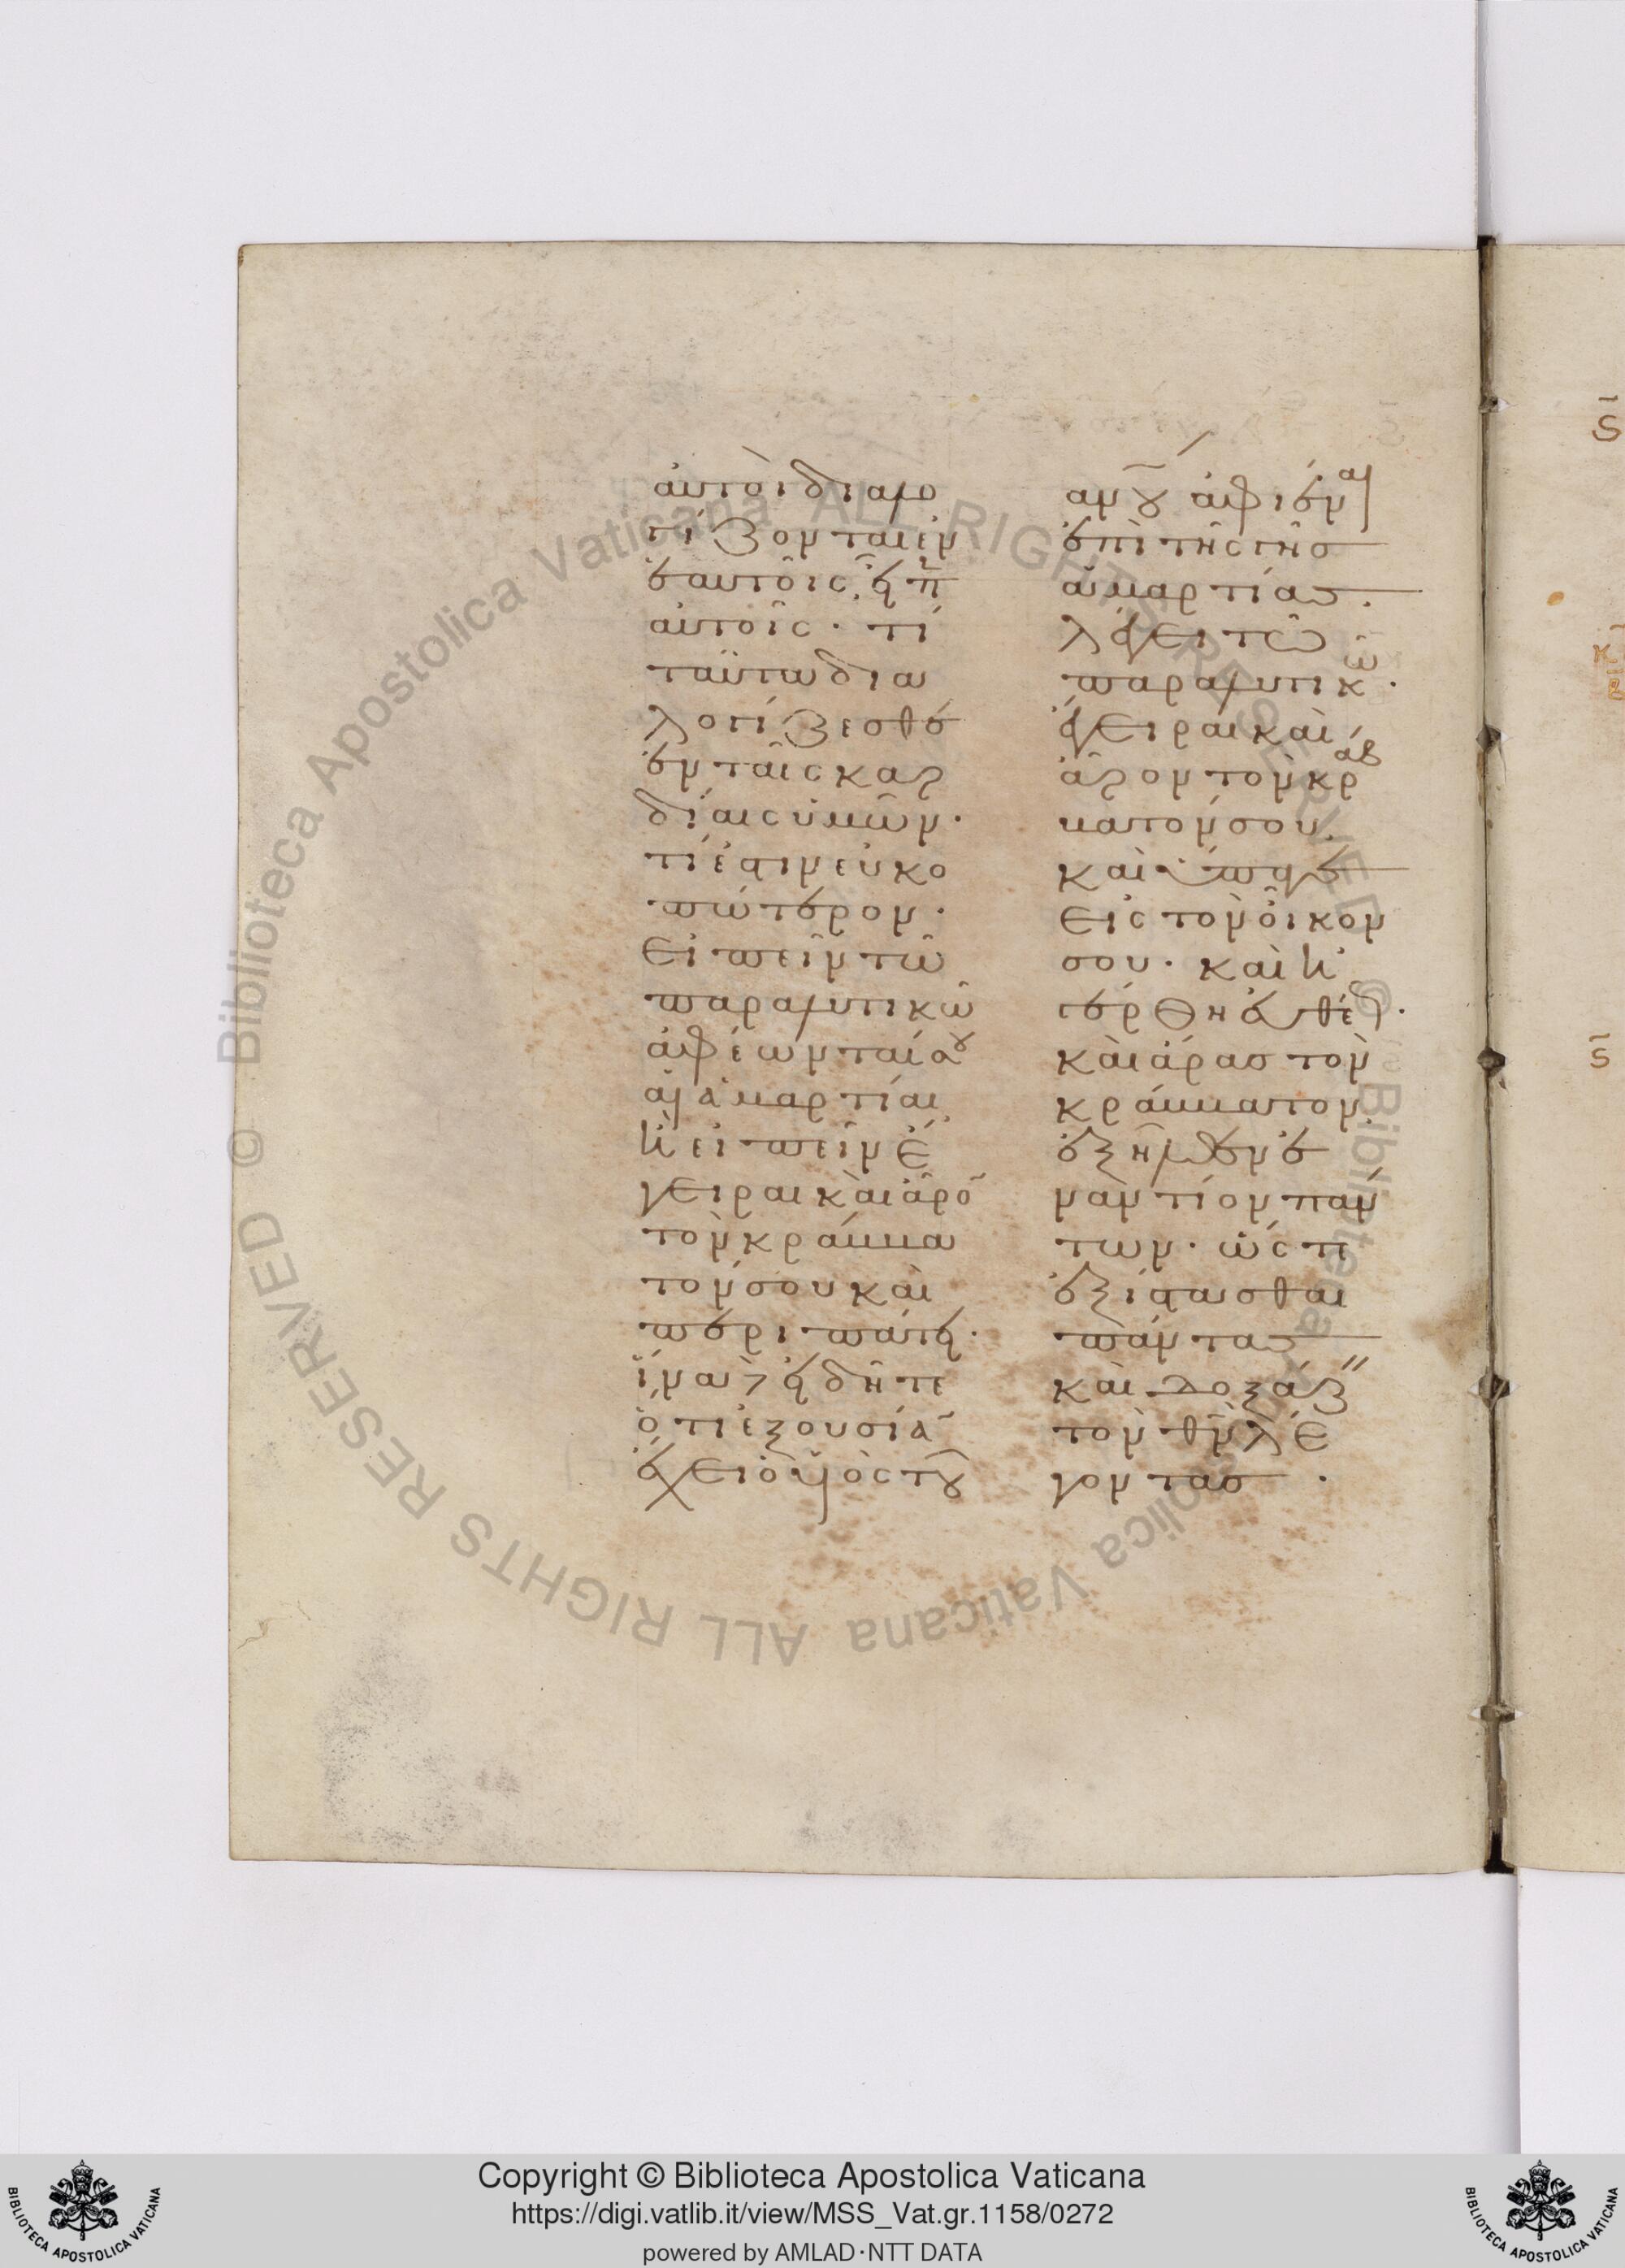 αὐτοὶ διαλο
γίζονται ἐν
ἑαυτοῖς, εἶπ
αὐτοῖς· τί
ταῦτα δια
λογίζεσθε
ἐν ταῖς καρ
δίαις ὑμῶν·
τί ἐστιν εὐκο
πώτερον·
εἰπεῖν τῶ
παραλυτικῶ
ἀφέωνταί σου
αἱ ἁμαρτίαι,
ἢ εἰπεῖν ἔ
γειραι καὶ ἆρον
τὸν κράμμα
τόν σου καὶ
περιπάτει·
ἵνα δὲ εἰδῆτε
ὅτι ἐξουσίαν
ἔχει ὁ υἱὸς τοῦ
ανου ἀφιέναι
ἐπὶ τῆς γῆς
ἁμαρτίας.
λέγει τῶ
παραλυτικῶ.
ἔγειραι καὶ
ἆρον τὸν κράβ
ματόν σου.
καὶ ὕπαγε
εἰς τὸν οἶκον
σου. καὶ ἠ
γέρθη εὐθέως.
καὶ ἄρας τὸν
κράμματον,
ἐξῆλθεν ἐ
ναντίον πάν
των. ὥστε
ἐξίστασθαι
πάντας
καὶ δοξάζειν
τὸν θν λέ
γοντας.
Copyright © Biblioteca Apostolica Vaticana
https://digi.vatlib.it/view/MSS_Vat.gr.1158/0272
powered by AMLAD·NTT DATA
BIBLIOTECA APOSTOLICA VATICANA
BIBLIOTECA APOSTOLICA VATICANA
© Biblioteca Apostolica Vaticana ALL RIGHTS RESERVED
© Biblioteca Apostolica Vaticana ALL RIGHTS RESERVED